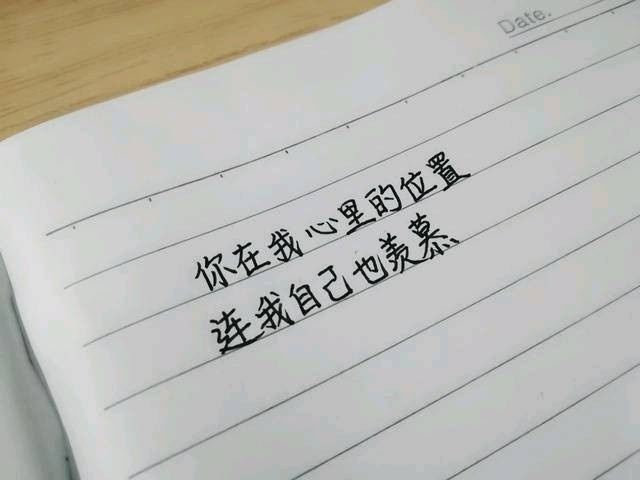 Date.
你在我心里的位置
连我自己也羡慕